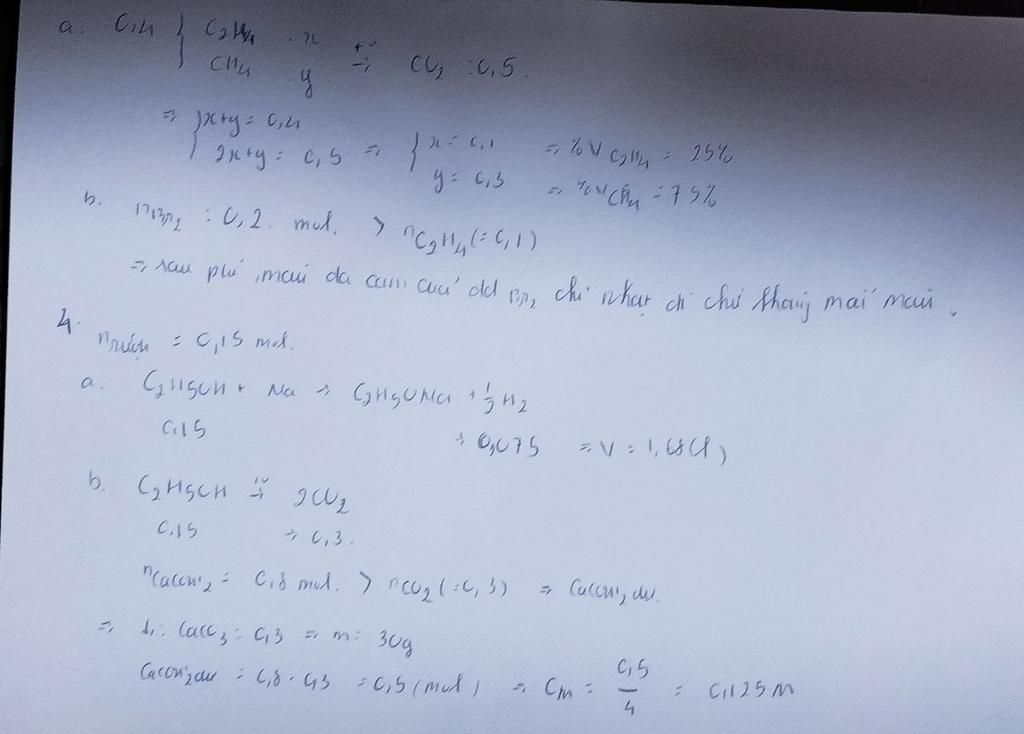 a. 0,4 { C2H4 : x
CH4 y →(t°) CO2 : 0,5.
=> { x+y = 0,4
2x+y = 0,5 => { x = 0,1 => %V C2H4 = 25%
y = 0,3 => %V CH4 = 75%
b. nBr2 : 0,2 mol. > nC2H4 (=0,1)
=> sau pứ, màu da cam của dd Br2 chỉ nhạt đi chứ không mất màu.
4. nrượu = 0,15 mol.
a. C2H5OH + Na → C2H5ONa + 1/2 H2
0,15 → 0,075 => V = 1,68(l)
b. C2H5OH →(t°) 2CO2
0,15 → 0,3.
nCa(OH)2 = 0,8 mol. > nCO2 (=0,3) => Ca(OH)2 dư.
=> CaCO3 = 0,3 => m = 30g
Ca(OH)2 dư = 0,8 - 0,3 = 0,5 (mol) => CM = 0,5/4 = 0,125M